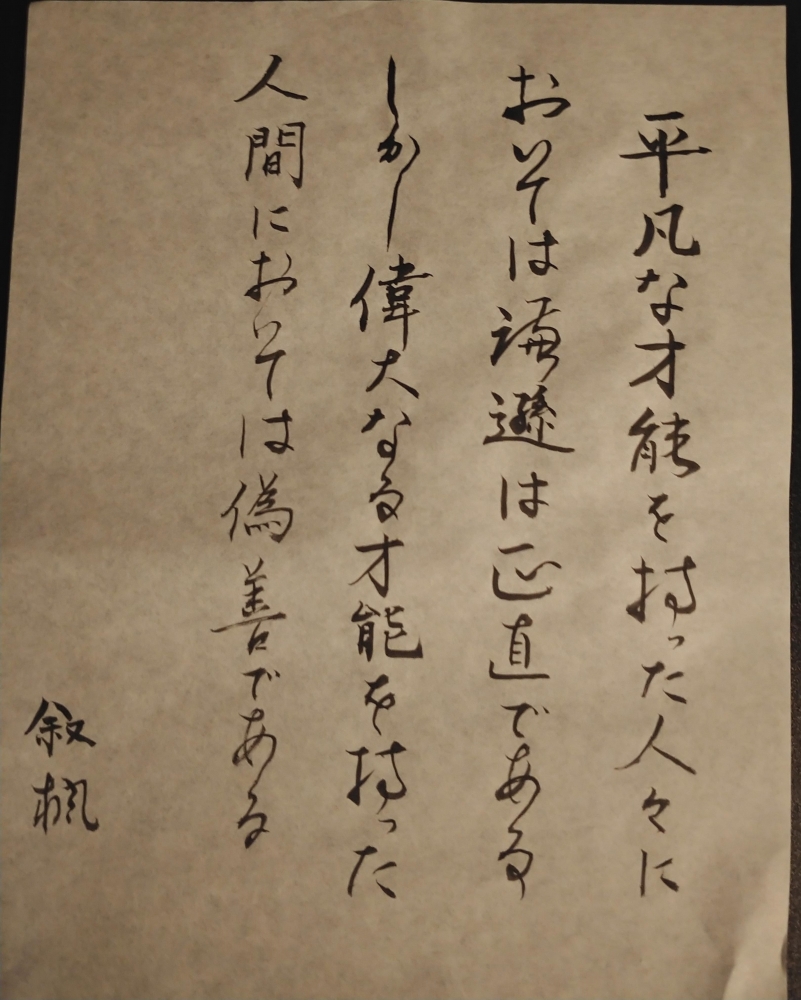 平凡な才能を持った人々に
おいては謙遜は正直である
しかし偉大なる才能を持った
人間においては偽善である
叙楓